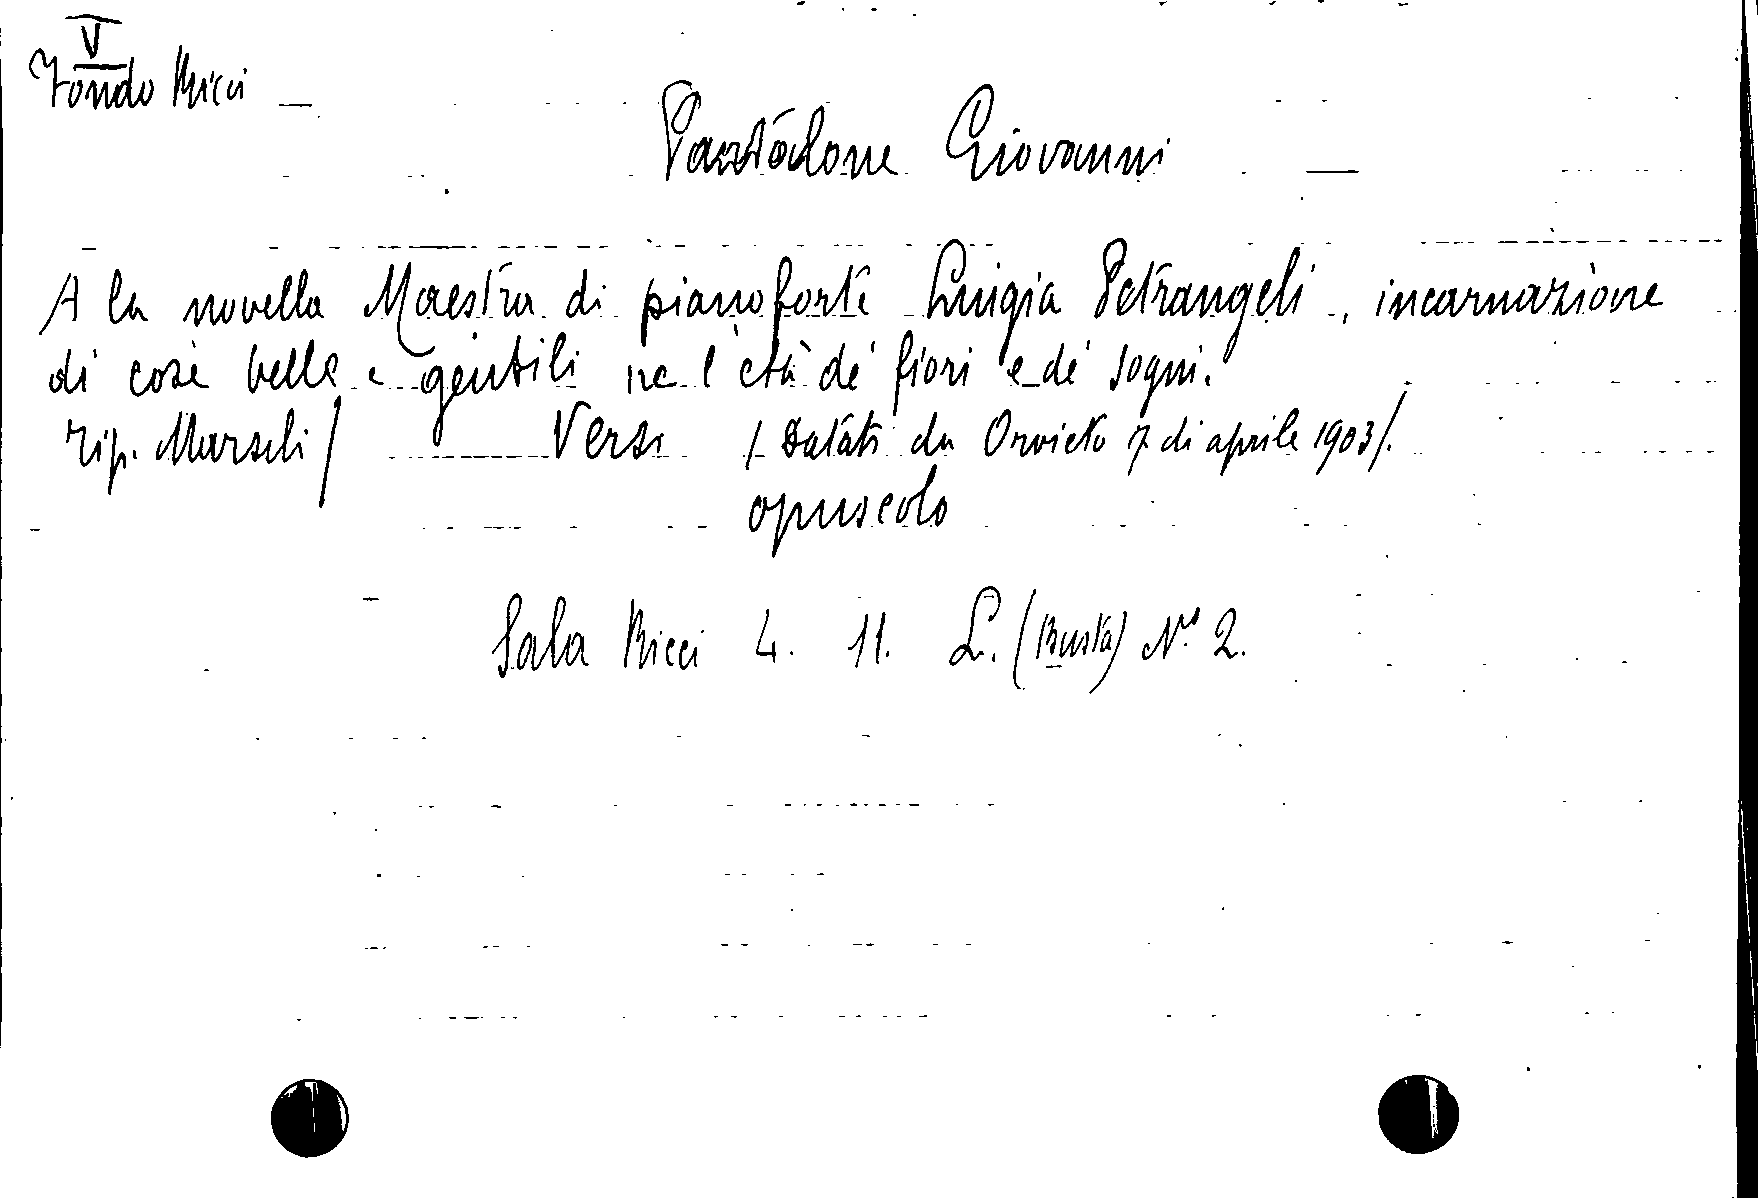 V
Fondo Ricci
Pantalone Giovanni
A la novella Maestra di pianoforte Luigia Petrangeli, incarnazione
di cose belle e gentili ne l'età de' fiori e de' sogni.
Tip. Marsili / Versi / Datati da Orvieto 7 di aprile 1903/.
opuscolo
Sala Ricci 4. 11. L. (Busta) No. 2.